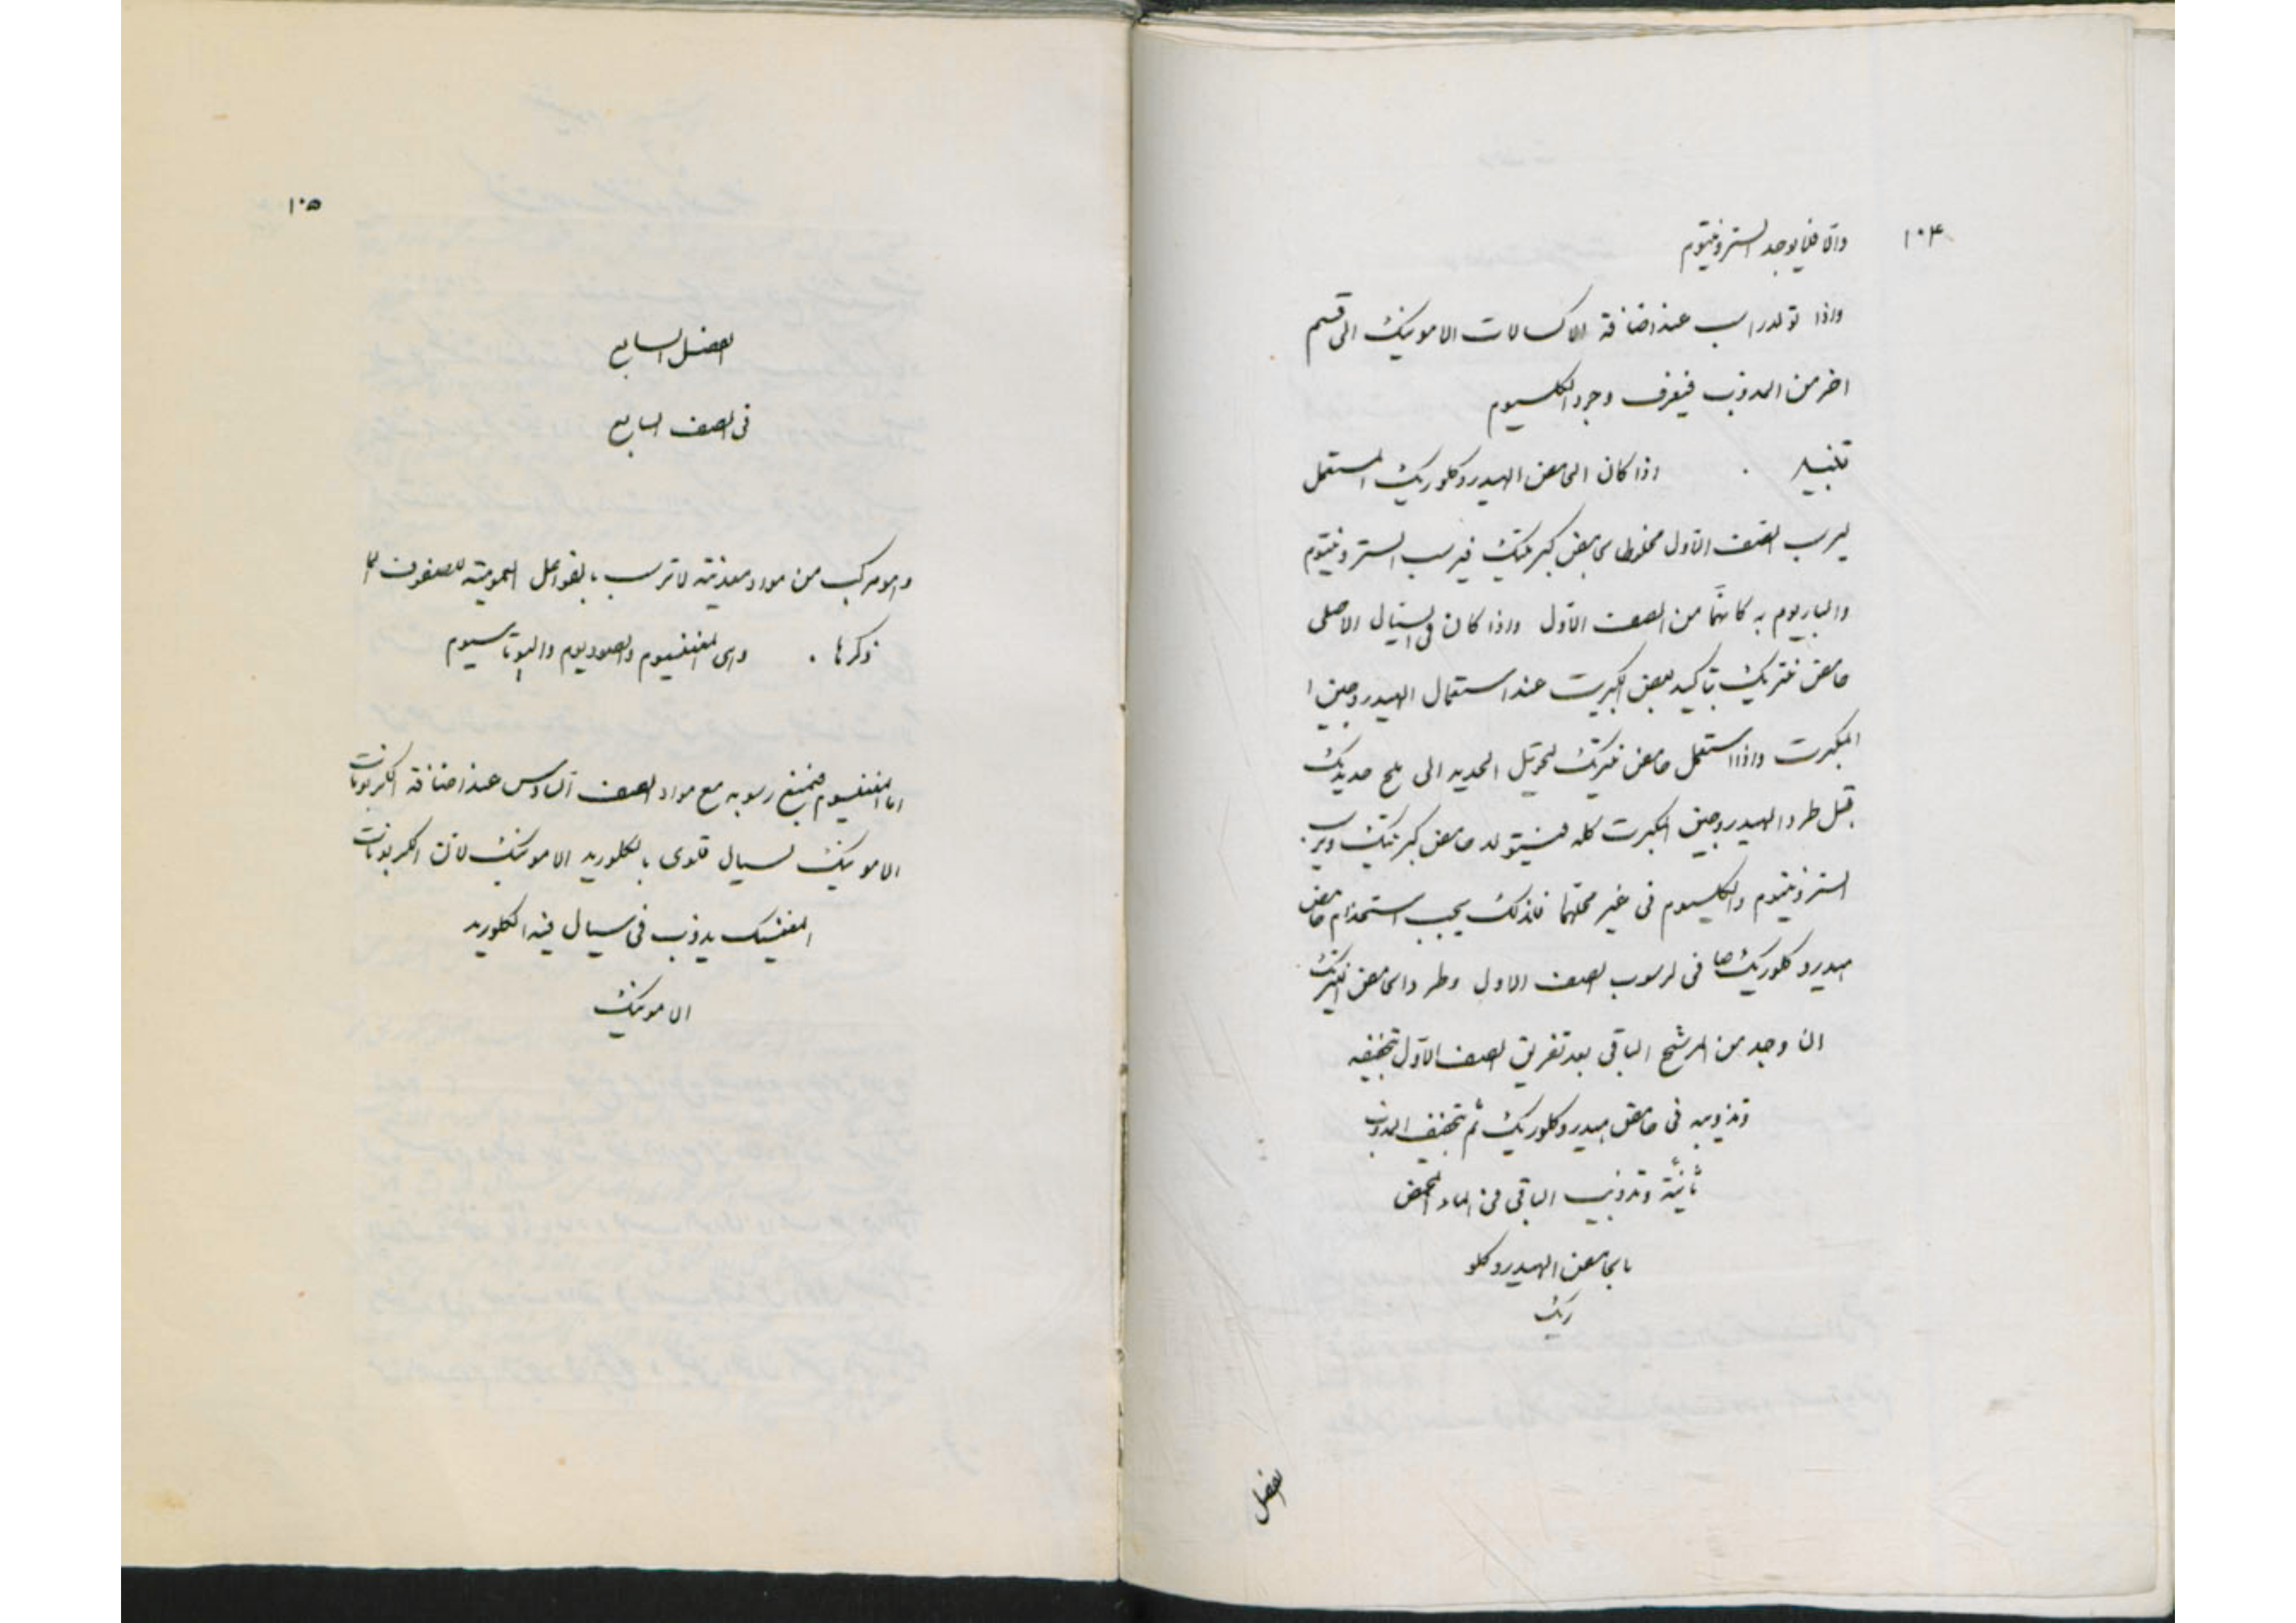 ١٠٤
والا فلا يوجد السترونتيوم
واذا تولد راسب عند اضافة الاكسالات الامونيك الى قسم
اخر من المذوب فيعرف وجود الكلسيوم
تنبيه . اذا كان الحامض الهيدروكلوريك المستعمل
ليرسب الصف الاول مخلوطا بحامض كبريتيك فيرسب السترونتيوم
والباريوم به كانهما من الصف الاول واذا كان فى السيال الاصلى
حامض نتريك يتأكسد بعض الكبريت عند استعمال الهيدروجين ا
المكبرت واذا استعمل حامض نيتريك لتحويل الحديد الى ملح حديديك
قبل طرد الهيدروجين المكبرت كله فيتولد حامض كبريتيك ويرسب
السترونتيوم والكلسيوم فى غير محلهما فلذلك يجب استخدام حامض
هيدروكلوريك فى لرسوب الصف الاول وطرد الحامض النيتريك
ان وجد من المرشح الباقى بعد تفريق الصف الاول بتجفيفه
وتذويبه فى حامض هيدروكلوريك ثم بتجفيف المذوب
ثانية وتذويب الباقى فى الماء المحمض
بالحامض الهيدروكلو
ريك
الفصل
١٠٥
الفصل السابع
فى الصف السابع
وهو مركب من مواد معدنية لا ترسب بالفواعل العمومية للصفوف
ذكرها . وهى المغنسيوم والصوديوم والبوتاسيوم
اما المغنسيوم فيمنع رسوبه مع مواد الصف السادس عند اضافة الكربونات
الامونيك لسيال قلوى بالكلوريد الامونيك لان الكربونات
المغنسيك يذوب فى سيال فيه الكلوريد
الامونيك